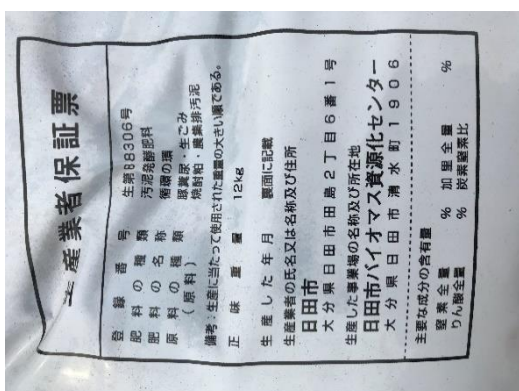 生産業者保証票
登録番号 生第88306号
肥料の種類 汚泥発酵肥料
肥料の名称 循環の環
原料の種類 豚糞尿・生ごみ
(原料) 焼酎粕・農集排汚泥
備考:生産に当たって使用された重量の大きい順である。
正味重量 12kg
生産した年月 裏面に記載
生産業者の氏名又は名称及び住所
日田市
大分県日田市田島2丁目6番1号
生産した事業場の名称及び所在地
日田市バイオマス資源化センター
大分県日田市清水町1906
主要な成分の含有量
窒素全量 % 加里全量 %
りん酸全量 % 炭素窒素比